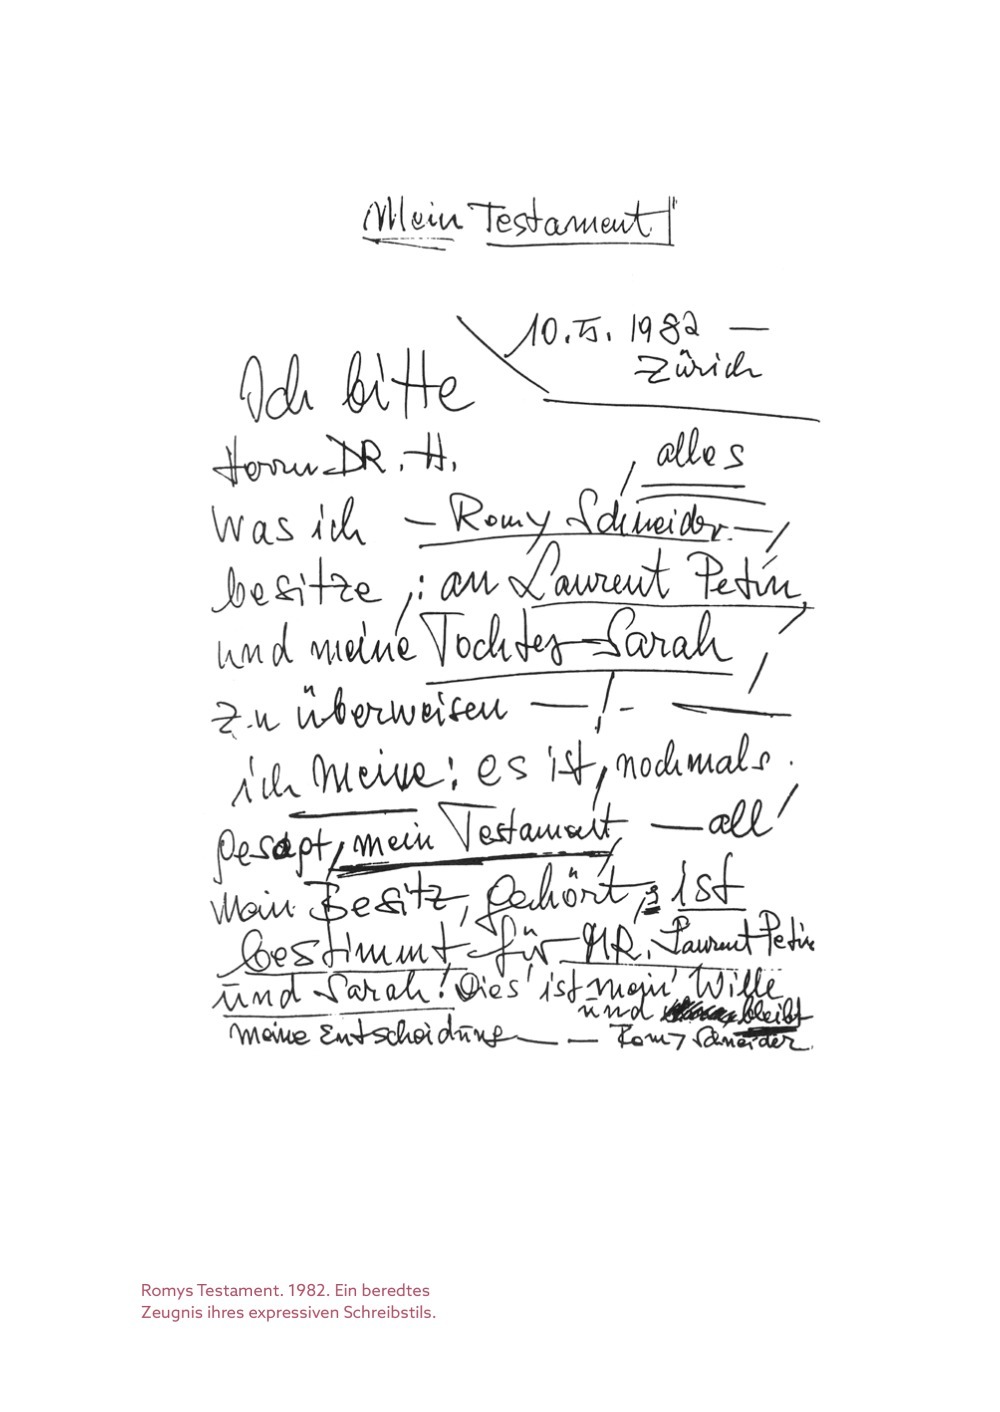 Mein Testament
10. 5. 1982 —
Zürich
Ich bitte
Herrn DR. H. alles
was ich – Romy Schneider –
besitze ; : an Laurent Petin
und meine Tochter – Sarah
zu überweisen — ! - —
ich meine: es ist, nochmals
gesagt, mein Testament — all'
mein Besitz, gehört, ist
bestimmt für MR. Laurent Petin
und Sarah! Dies' ist mein' Wille
und bleibt
meine Entscheidung — — Romy Schneider
Romys Testament. 1982. Ein beredtes
Zeugnis ihres expressiven Schreibstils.